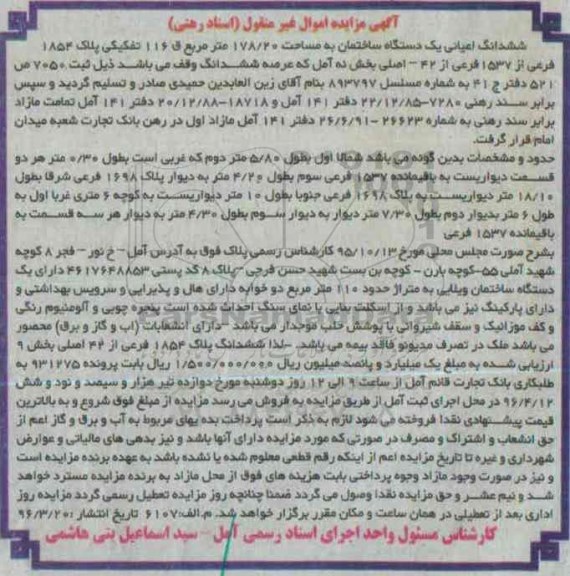 آگهی مزایده اموال غیر منقول (اسناد رهنی)
ششدانگ اعیانی یک دستگاه ساختمان به مساحت ۱۷۸/۲۰ متر مربع ق ۱۱۶ تفکیکی پلاک ۱۸۵۴
فرعی از ۱۵۳۷ فرعی از ۴۲ - اصلی بخش نه آمل که عرصه ششدانگ وقف می باشد ذیل ثبت ۷۰۵۰ ص
۵۲۱ دفتر ج ۴۱ به شماره مسلسل ۸۹۳۷۹۷ بنام آقای زین العابدین حمیدی صادر و تسلیم گردید و سپس
برابر سند رهنی ۷۲۸۰-۲۲/۱۲/۸۵ دفتر ۱۴۱ آمل و ۱۸۷۱۸-۲۰/۱۲/۸۸ دفتر ۱۴۱ آمل تمامت مازاد
برابر سند رهنی به شماره ۲۶۶۲۳ -۲۶/۶/۹۱ دفتر ۱۴۱ آمل مازاد اول در رهن بانک تجارت شعبه میدان
امام قرار گرفت.
حدود و مشخصات بدین گونه می باشد شمالا اول بطول ۵/۸۰ متر دوم که غربی است بطول ۰/۳۰ متر هر دو
قسمت دیواریست به باقیمانده ۱۵۳۷ فرعی سوم بطول ۴/۲۰ متر به دیوار پلاک ۱۶۹۸ فرعی شرقا بطول
۱۸/۱۰ متر دیواریست به پلاک ۱۶۹۸ فرعی جنوبا بطول ۱۰ متر دیواریست به کوچه ۶ متری غربا اول به
طول ۶ متر بدیوار دوم بطول ۷/۳۰ متر دیوار به دیوار سوم بطول ۴/۳۰ متر به دیوار هر سه قسمت به
باقیمانده ۱۵۳۷ فرعی
بشرح صورت مجلس محلی مورخ ۹۵/۱۰/۱۳ کارشناس رسمی پلاک فوق به آدرس آمل - خ نور - فجر ۸ کوچه
شهید آملی ۵۵-کوچه بارن - کوچه بن بست شهید حسن فرجی -پلاک ۸ کد پستی ۴۶۱۷۶۴۸۸۵۳ دارای یک
دستگاه ساختمان ویلایی به متراژ حدود ۱۱۰ متر مربع دو خوابه دارای هال و پذیرایی و سرویس بهداشتی و
دارای پارکینگ نیز می باشد و از اسکلت بنایی با نمای سنگ احداث شده است پنجره چوبی و آلومنیوم رنگی
و کف موزائیک و سقف شیروانی با پوشش حلب موجدار می باشد -دارای انشعابات (آب و گاز و برق) محصور
می باشد ملک در تصرف مدیونو فاقد بیمه می باشد. -لذا ششدانگ پلاک ۱۸۵۴ فرعی از ۴۲ اصلی بخش ۹
ارزیابی شده به مبلغ یک میلیارد و پانصد میلیون ریال ۱/۵۰۰/۰۰۰/۰۰۰ ریال بابت پرونده ۹۳۱۲۷۵ به
طلبکاری بانک تجارت قائم آمل از ساعت ۹ الی ۱۲ روز دوشنبه مورخ دوازده تیر هزار و سیصد و نود و شش
۹۶/۴/۱۲ در محل اجرای ثبت آمل از طریق مزایده به فروش می رسد مزایده از مبلغ فوق شروع و به بالاترین
قیمت پیشنهادی نقدا فروخته می شود لازم به ذکر است پرداخت بده یهای مربوط به آب و برق و گاز اعم از
حق انشعاب و اشتراک و مصرف در صورتی که مورد مزایده دارای آنها باشد و نیز بدهی های مالیاتی و عوارض
شهرداری و غیره تا تاریخ مزایده اعم از اینکه رقم قطعی معلوم شده یا نشده باشد به عهده برنده مزایده است
و نیز در صورت وجود مازاد وجوه پرداختی بابت هزینه های فوق از محل مازاد به برنده مزایده مسترد خواهد
شد و نیم عشر و حق مزایده نقدا وصول می گردد ضمنا چنانچه روز مزایده تعطیل رسمی گردد مزایده روز
اداری بعد از تعطیلی در همان ساعت و مکان مقرر برگزار خواهد شد. م.الف:۶۱۰۷ تاریخ انتشار :۹۶/۳/۲۰
کارشناس مسئول واحد اجرای اسناد رسمی آمل - سید اسماعیل بنی هاشمی